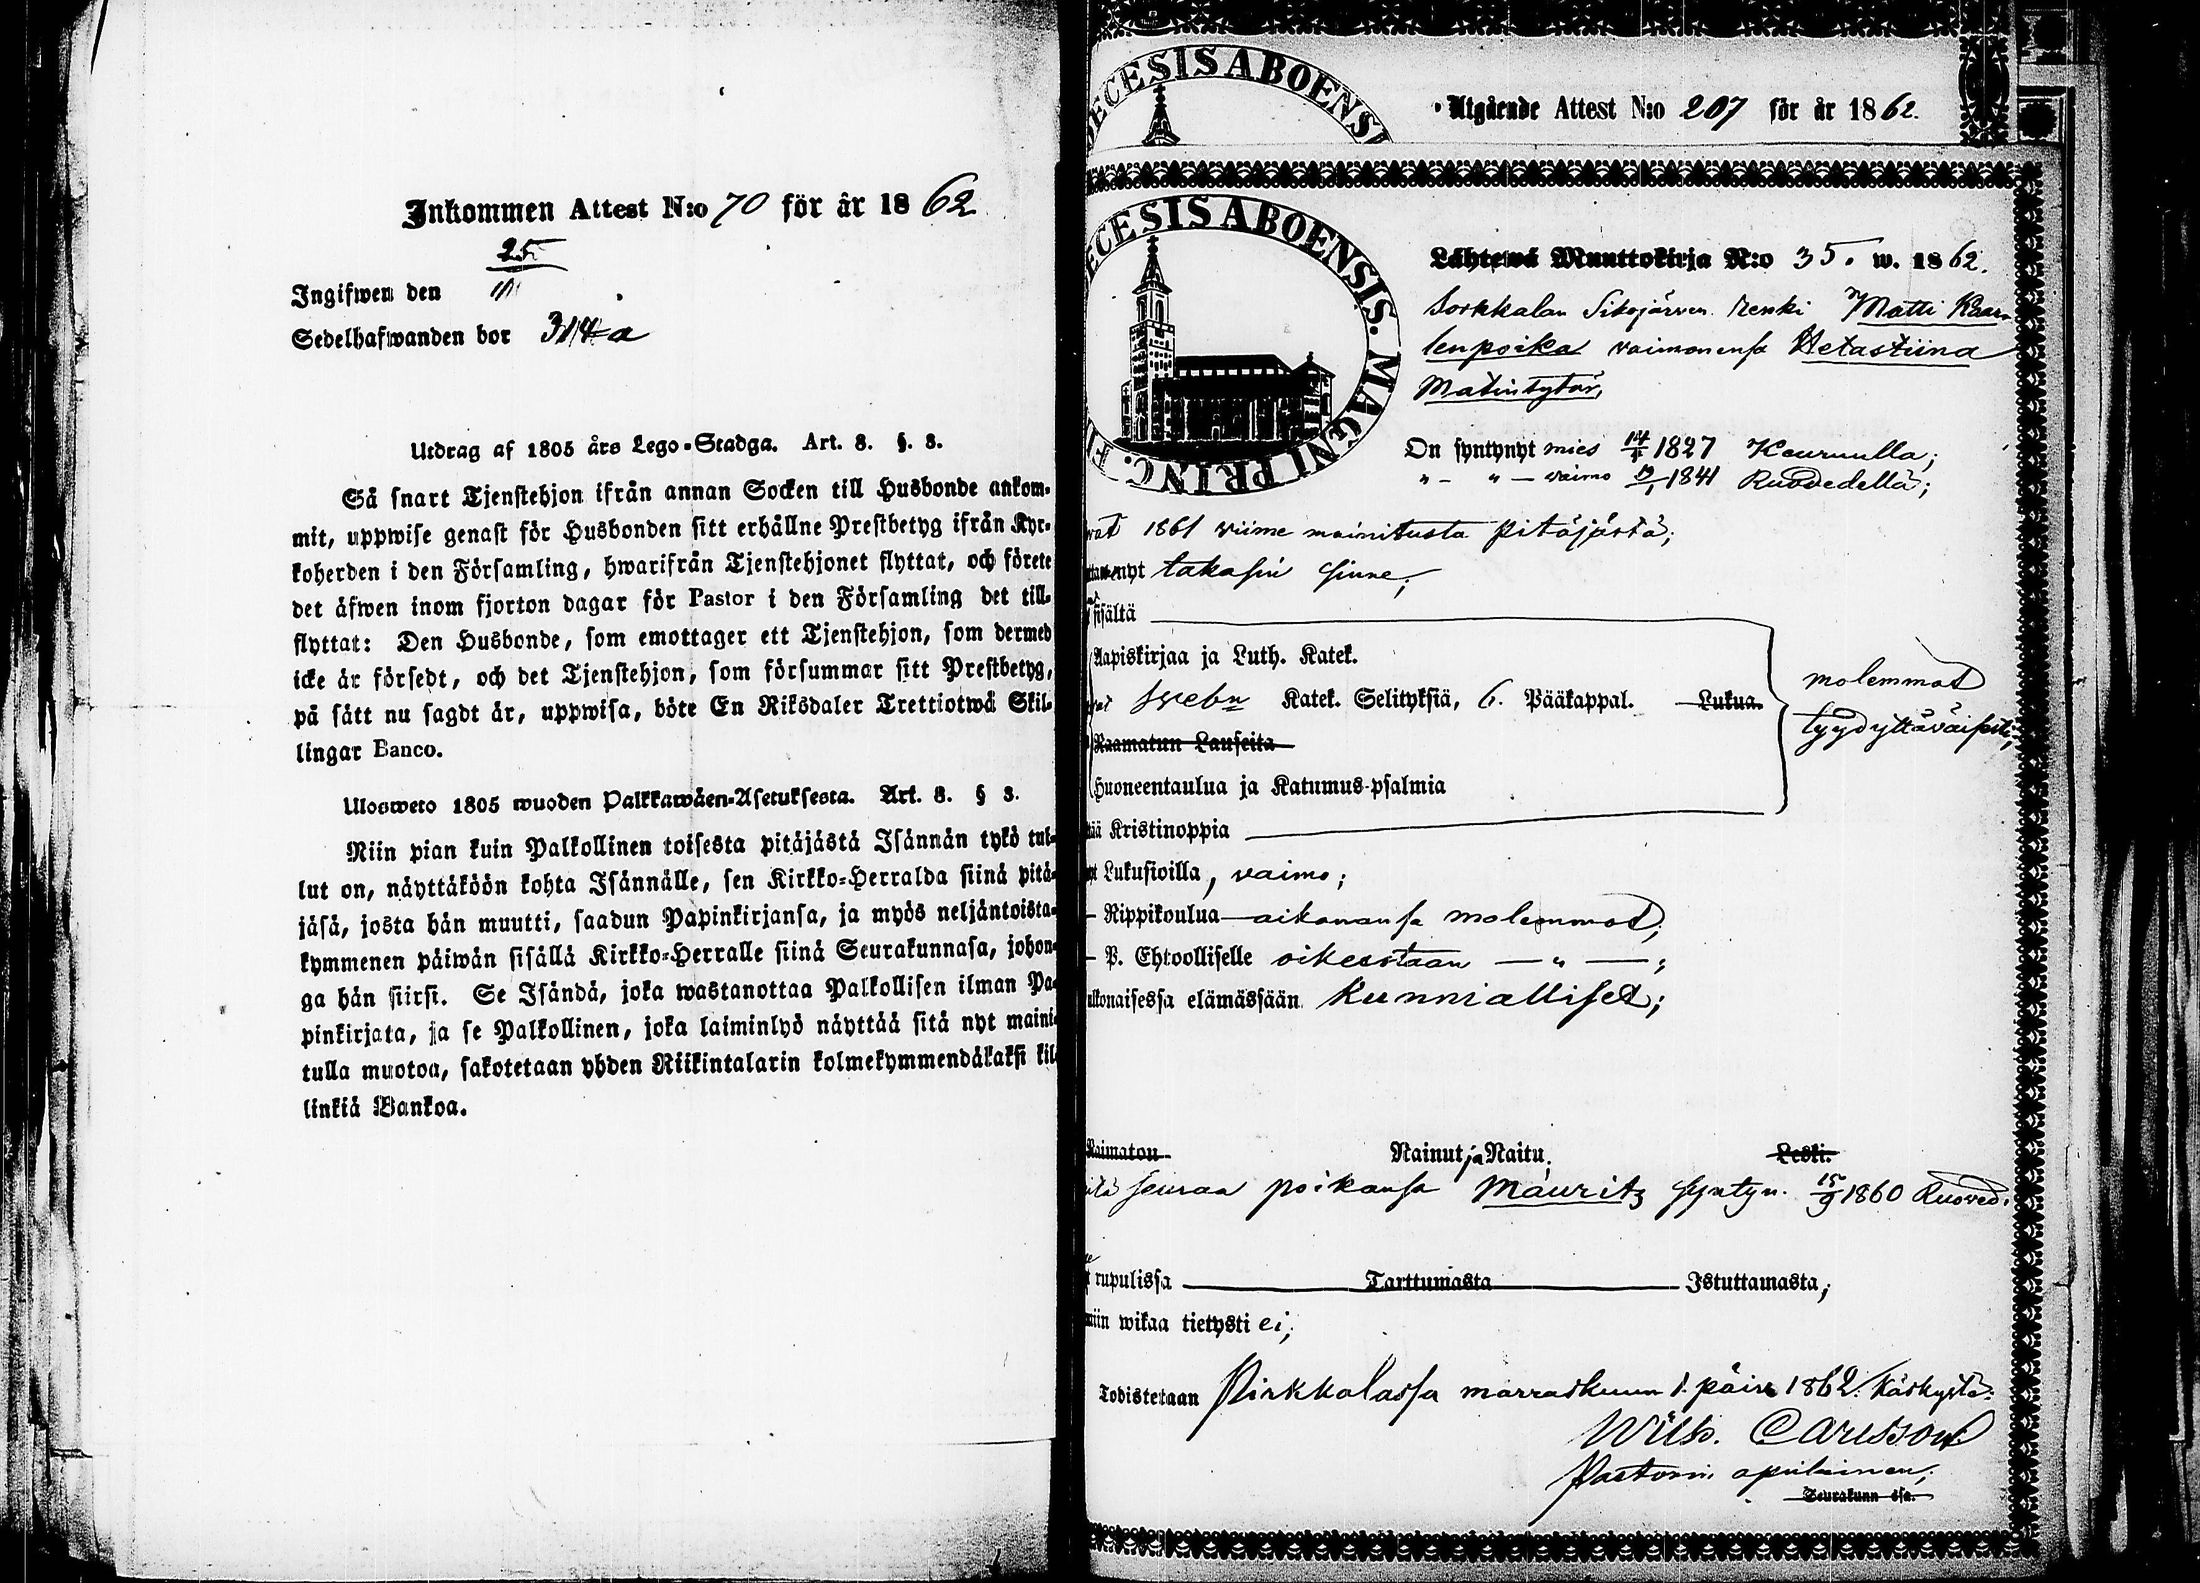 Inkommen Attest N:o 70 för år 1862
25
Ingifwen den
Sedelhafwanden bor 314 a
Utdrag af 1805 års Lego-Stadga. Art. 8. §. 8.
Så snart Tjenstehjon ifrån annan Socken till Husbonde ankom-
mit, uppwise genast för Husbonden sitt erhållne Prestbetyg ifrån Kyr-
koherden i den Församling, hwarifrån Tjenstehjonet flyttat, och förete
det äfwen inom fjorton dagar för Pastor i den Församling det till-
flyttat: Den Husbonde, som emottager ett Tjenstehjon, som dermed
icke är försedt, och det Tjenstehjon, som försummar sitt Prestbetyg,
på sätt nu sagdt är, uppwisa, böte En Riksdaler Trettiotwå Skil-
lingar Banco.
Ulosweto 1805 wuoden Palkkawäen-Asetuksesta. Art. 8. § 8.
Niin pian kuin Palkollinen toisesta pitäjästä Isännän tykö tul-
lut on, näyttäköön kohta Isännälle, sen Kirkko-Herralda siinä pitä-
jäsä, josta hän muutti, saadun Papinkirjansa, ja myös neljäntoista-
kymmenen päiwän sisällä Kirkko-Herralle siinä Seurakunnasa, johon-
ga hän siirsi. Se Isändä, joka wastanottaa Palkollisen ilman Pa-
pinkirjata, ja se Palkollinen, joka laiminlyö näyttää sitä nyt maini-
tulla muotoa, sakotetaan yhden Riikintalarin kolmekymmendäkaksi kil-
linkiä Bankoa.
DECESIS ABOENSI
Utgående Attest N:o 207 för år 1862.
ECESIS ABOENSIS. MAGNI PRINC. FI
Lähtewä Muuttokirja N:o 35. w. 1862.
Sorkkalan Sikojärven renki Matti Kaar-
lenpoika vaimonensa Hetastiina
Matintytär,
On syntynyt mies 14/ 1827 Keuruulla;
" - " - vaimo /1 1841 Ruovedellä;
wat 1861 viime mainitusta Pitäjästä;
nyt takasin sinne;
sisältä
Aapiskirjaa ja Luth. Katek.
Sveb. Katek. Selityksiä, 6. Pääkappal. Lukua.
molemmat
tyydyttäväisesti;
Raamatun Lauseita
Huoneentaulua ja Katumus-psalmia
ää Kristinoppia
yt Lukusioilla, vaimo;
- Rippikoulua aikanansa molemmat;
- P. Ehtoolliselle oikeestaan — " — ;
ulkonaisessa elämässään kunnialliset;
Naimaton Nainut ja Naitu; Leski.
itä seuraa poikansa Mauritz syntyn. 15/9 1860 Ruoved.
rupulissa Tarttumasta Istuttamasta;
niin wikaa tietysti ei;
Todistetaan Pirkkalassa marraskuun 1. päiv. 1862. Käskystä:
Wilh. Carlsson
Pastorin apulainen;
Seurakunn ssa.